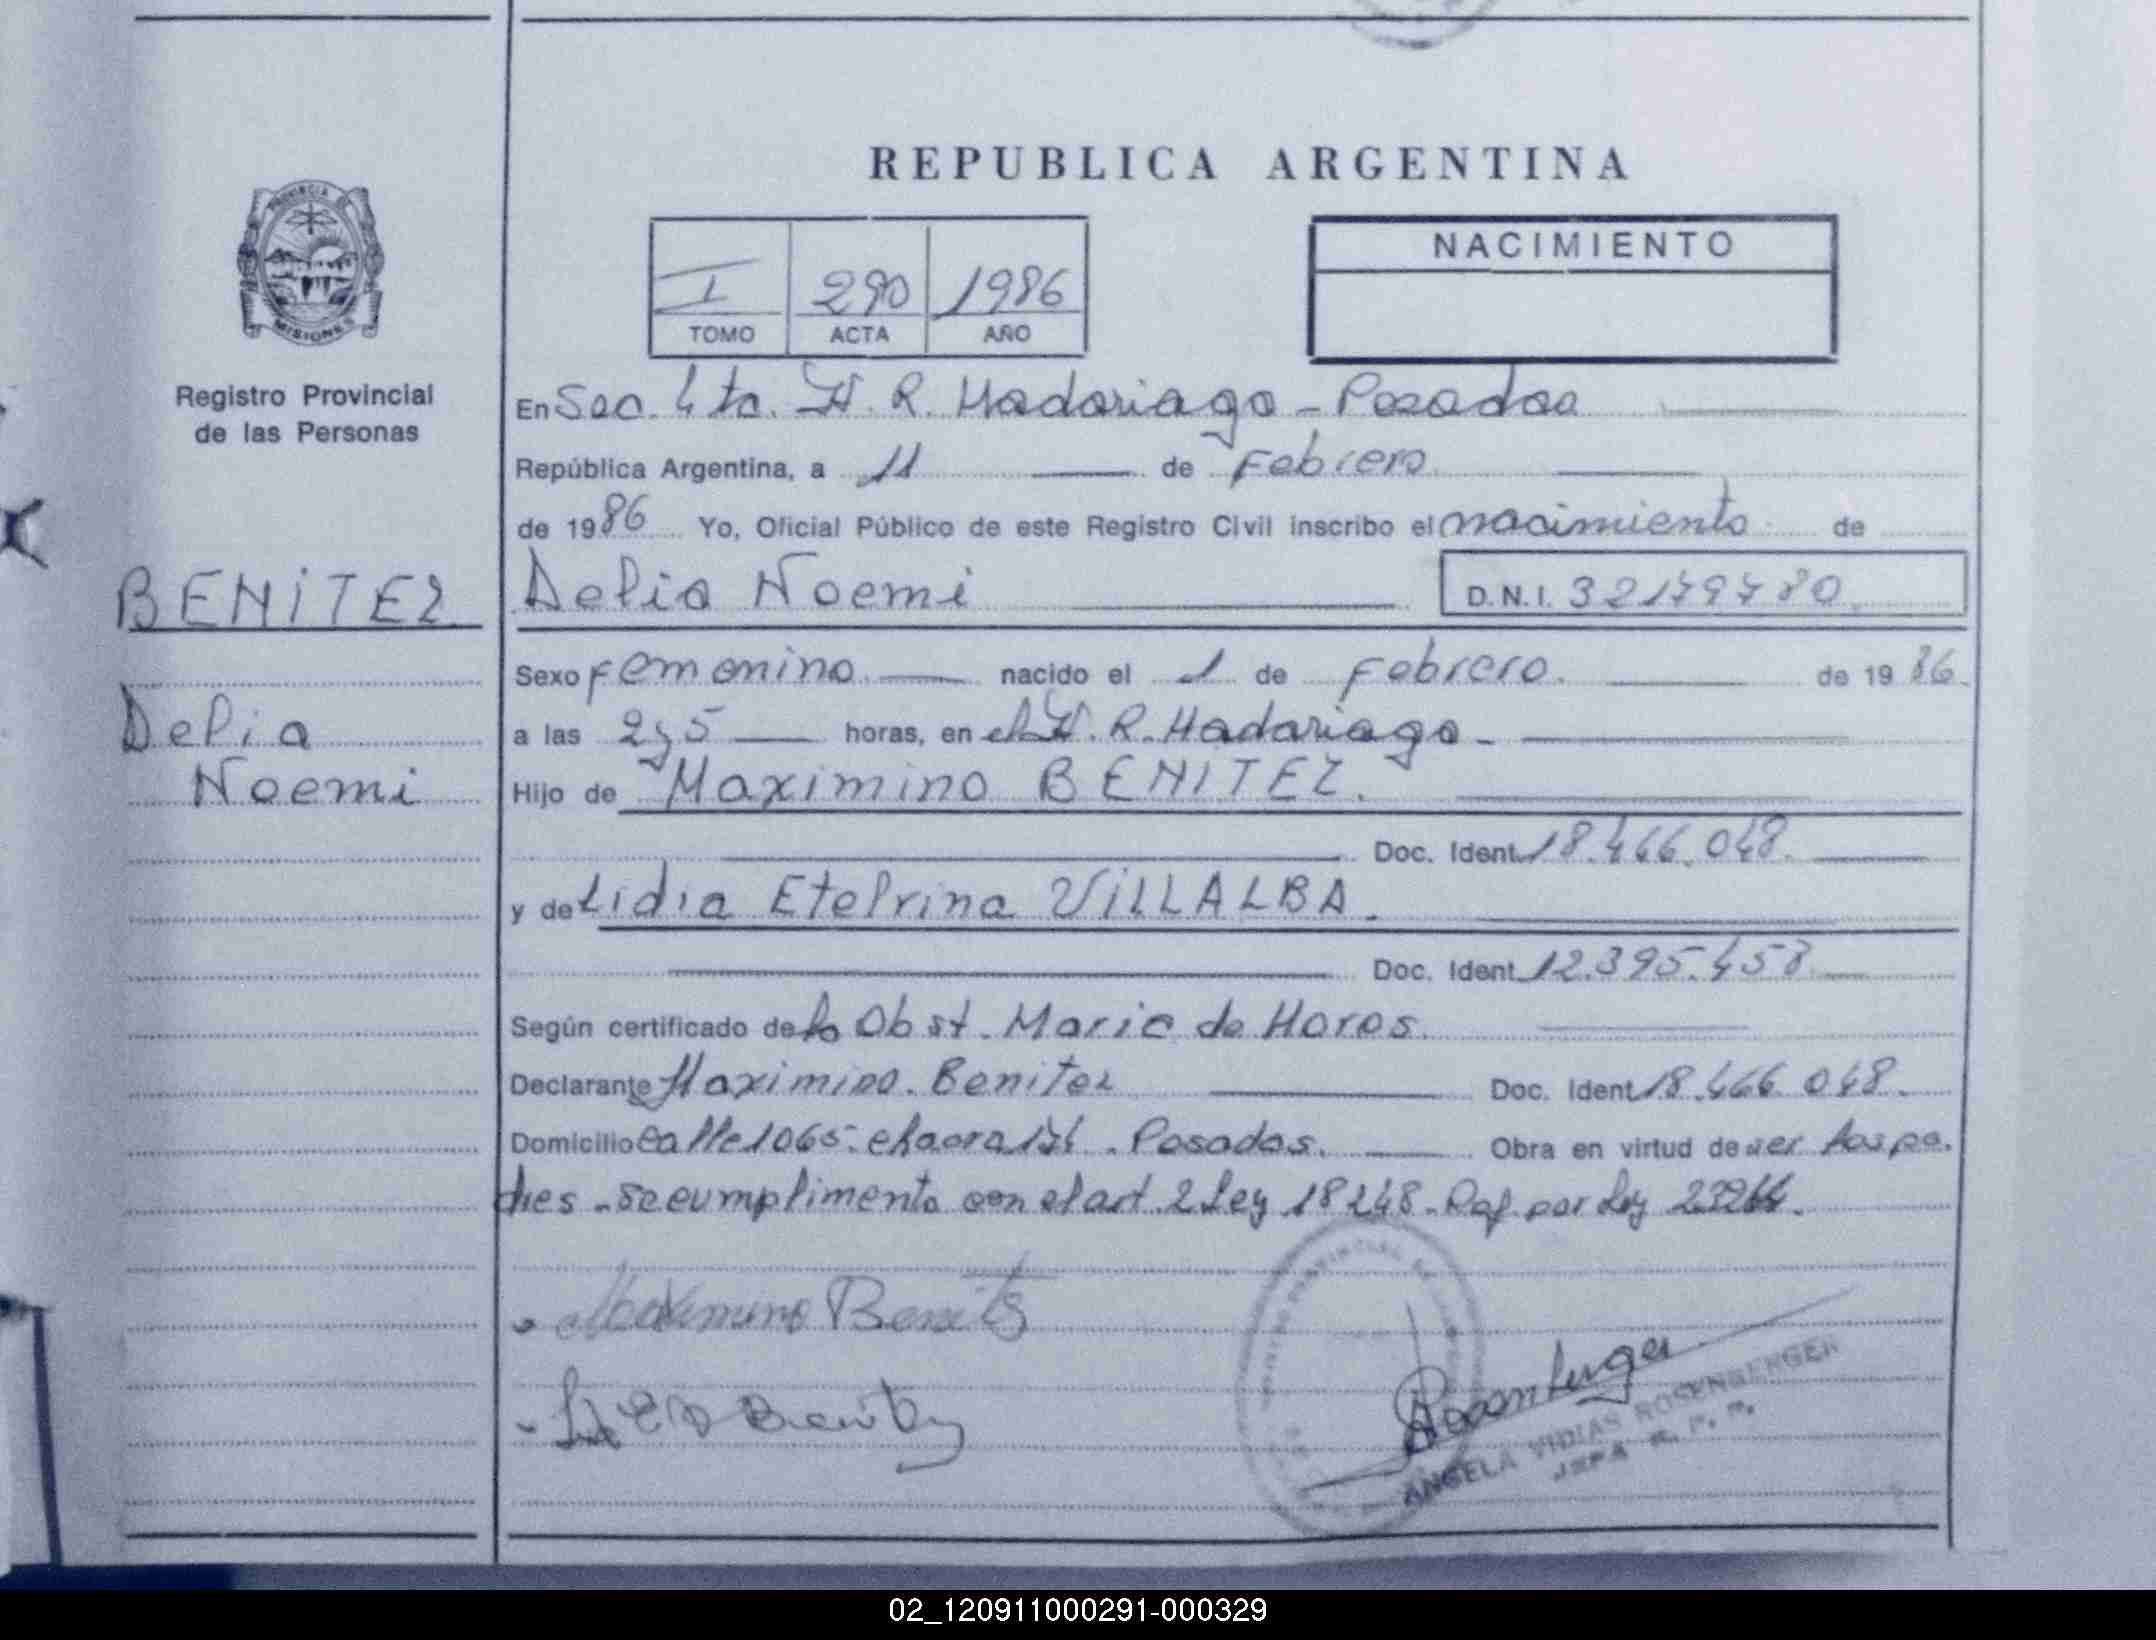 REPUBLICA ARGENTINA
PROVINCIA
MISIONES
Registro Provincial
de las Personas
I 290 1986
TOMO ACTA AÑO
NACIMIENTO
En Sec. 4ta. H. R. Madariaga - Posadas
República Argentina, a 11 de Febrero
de 1986 Yo, Oficial Público de este Registro Civil inscribo el nacimiento de
BENITEZ
Delia Noemi D.N.I. 32179780
Sexo Femenino nacido el 1 de Febrero. de 1986
Delia
Noemi
a las 2 y 5 horas, en el H. R. Madariaga -
Hijo de Maximino BENITEZ.
Doc. Ident. 18.466.048.
y de Lidia Etelvina VILLALBA.
Doc. Ident. 12.395.458
Según certificado de la Obst. Maria de Horos.
Declarante Maximino Benitez Doc. Ident 18.466.048.
Domicilio Calle 1065. chacra 174. Posadas. Obra en virtud de ser los pa.
dres - se cumplimento con el art. 2 Ley 18248 - por Ley 23264.
Maximino Benitez
Benitez
Rosenberger
ANGELA VIDIAS ROSENBERGER
JEFA R. P. P.
02_120911000291-000329